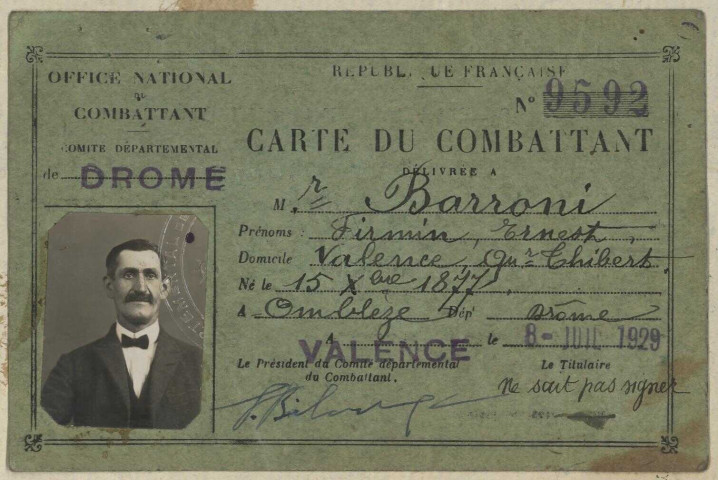 OFFICE NATIONAL
DU
COMBATTANT
COMITÉ DÉPARTEMENTAL
de DRÔME
RÉPUBLIQUE FRANÇAISE
N° 9592
CARTE DU COMBATTANT
DÉLIVRÉE A
M r Barroni
Prénoms : Firmin, Ernest,
Domicile Valence, Qur Chibert
Né le 15 Xbre 1877,
A Omblèze Dépt Drôme
A VALENCE le 8 - JUIL 1929
Le Président du Comité départemental
du Combattant,
Le Titulaire
ne sait pas signer